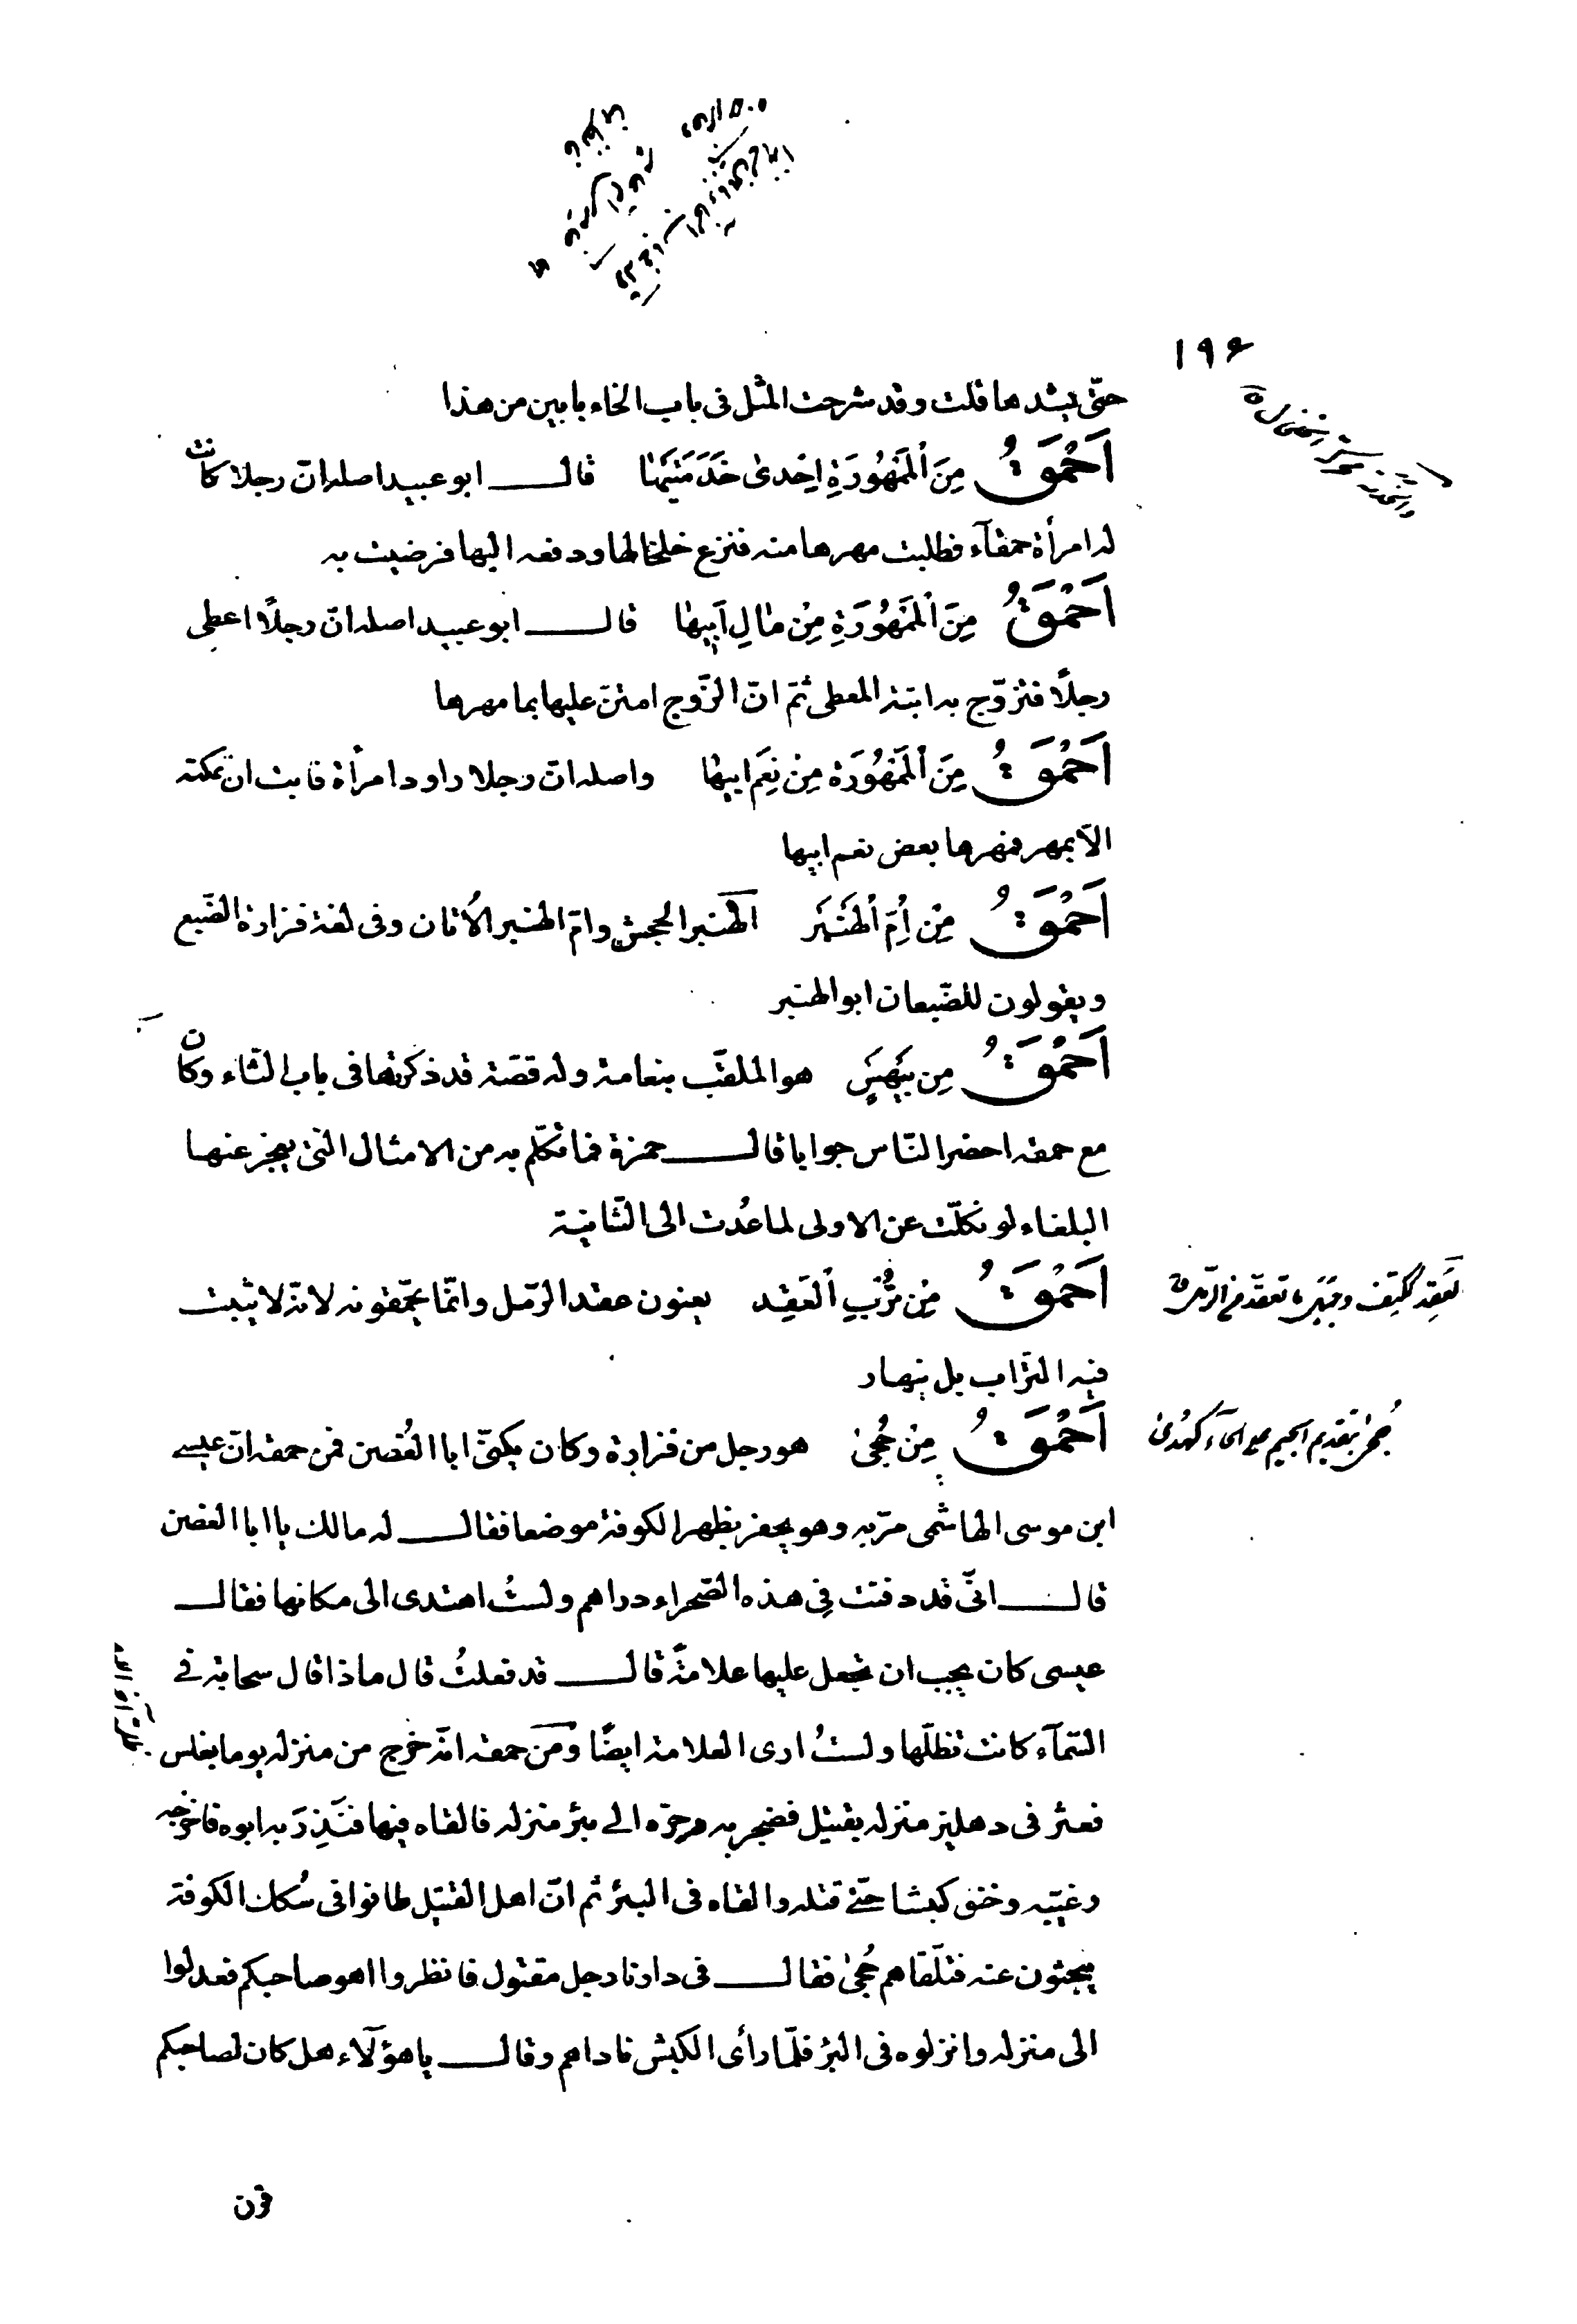 ١٩۶
حتّى يشدها قلت وقد شرحت المثل فى باب الخاء بابين من هذا
اَحْمَقُ مِنَ اْلمَمْهُورَةِ اِحْدىٰ خَدَمَتَيْهٰا قال ابو عبيد اصله انّ رجلا كانت
له امرأة حمقآء فطلبت مهرها منه فنزع خلخالها ودفعه اليها فرضيت به
اَحْمَقُ مِنَ اْلمَمْهُورَةِ مِنْ مٰالِ اَبيهٰا قال ابو عبيد اصله انّ رجلًا اعطى
رجلًا فتزوّج به ابنة المعطى ثمّ انّ الزّوج امتنّ عليها بما مهرها
اَحْمَقُ مِنَ اْلمَمْهُورَة مِنْ نِعَم ابيهٰا واصله انّ رجلا راود امرأة فابت ان تمكنه
الّا بمهر فمهرها بعض نعم ابيها
اَحْمَقُ مِنْ اُمِّ اْلهِنَّبْر الهنبر الجحش وامّ الهنبر الأتان وفى لغة فزارة الضّبع
ويقولون للضّبعان ابو الهنبر
اَحْمَقُ مِن بَيْهَسٍ هو الملقّب بنعامة وله قصّة قد ذكرتها فى باب الثّاء وكان
مع حمقه احضر النّاس جوابا قال حمزة فما تكلّم به من الامثال الّتى يعجز عنها
البلغاء لو نكلّت عن الاولى لما عُدت الى الثّانية
اَحْمَقُ مِنْ تُرْبِ اْلعَقِد يعنون عقد الرّمل وانّما يحمّقونه لانّه لا يثبت
فيه التّراب بل ينهار
لعَقِد ككتِف وجَبَل ما تعقّد من الرّمل
اَحْمَقُ مِنْ جُحىٰ هو رجل من فزارة وكان يكنّى ابا الغُصن فمن حمقه انّ عيسى
جُحىٰ بتقديم الجيم على الحآء كهُدىٰ
ابن موسى الهاشمى مرّ به وهو يحفر بظهر الكوفة موضعا فقال له مالك يا ابا الغصن
قال انّى قد دفنت فِى هذه الصّحراء دراهم ولستُ اهتدى الى مكانها فقال
عيسى كان يجب ان تجعل عليها علامةً قال قد فعلتُ قال ماذا قال سحابة فى
السّمآء كانت تظلّها ولستُ ارى العلامة ايضًا وَمن حمقه انّه خرج من منزله يوما بغلس
فعثر فى دهليز منزله بقتيل فضجر به وجرّه الى بئر منزله فالقاه فيها فنَذِرَ به ابوه فاخرجه
وغيّبه وخنق كبشا حتّى قتله والقاه فى البئر ثم انّ اهل القتيل طافوا فى سُكك الكوفة
يبحثون عنه فتلّقاهم جُحىٰ فقال فى دارنا رجل مقتول فانظروا اهو صاحبكم فعدلوا
الى منزله وانزلوه فى البئر فلمّا رأى الكبش ناداهم وقال يا هؤلآء هل كان لصاحبكم
قرن